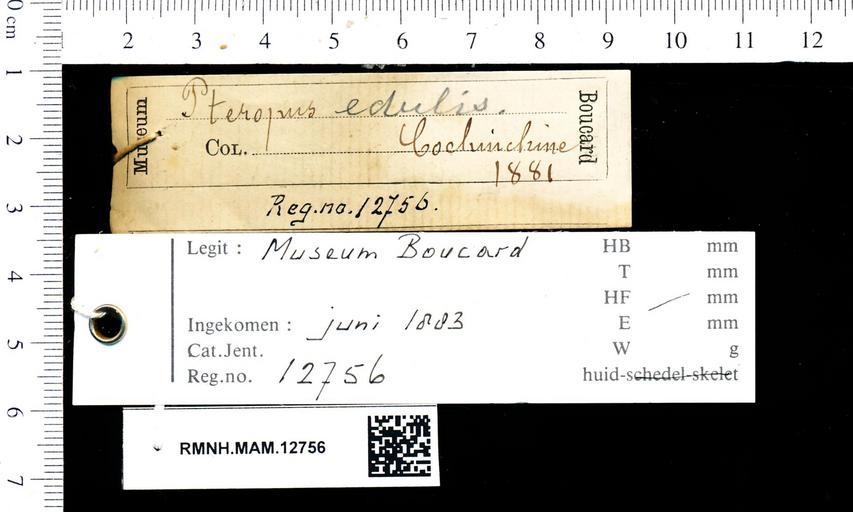 0 cm
2 3 4 5 6 7 8 9 10 11 12
1
2
3
4
5
6
7
Museum
Pteropus edulis.
Boucard
COL. Cochinchine
1881
Reg.no.12756.
Legit : Museum Boucard
HB mm
T mm
HF mm
Ingekomen : juni 1883
E mm
Cat.Jent.
W g
Reg.no. 12756
huid-schedel-skelet
RMNH.MAM.12756